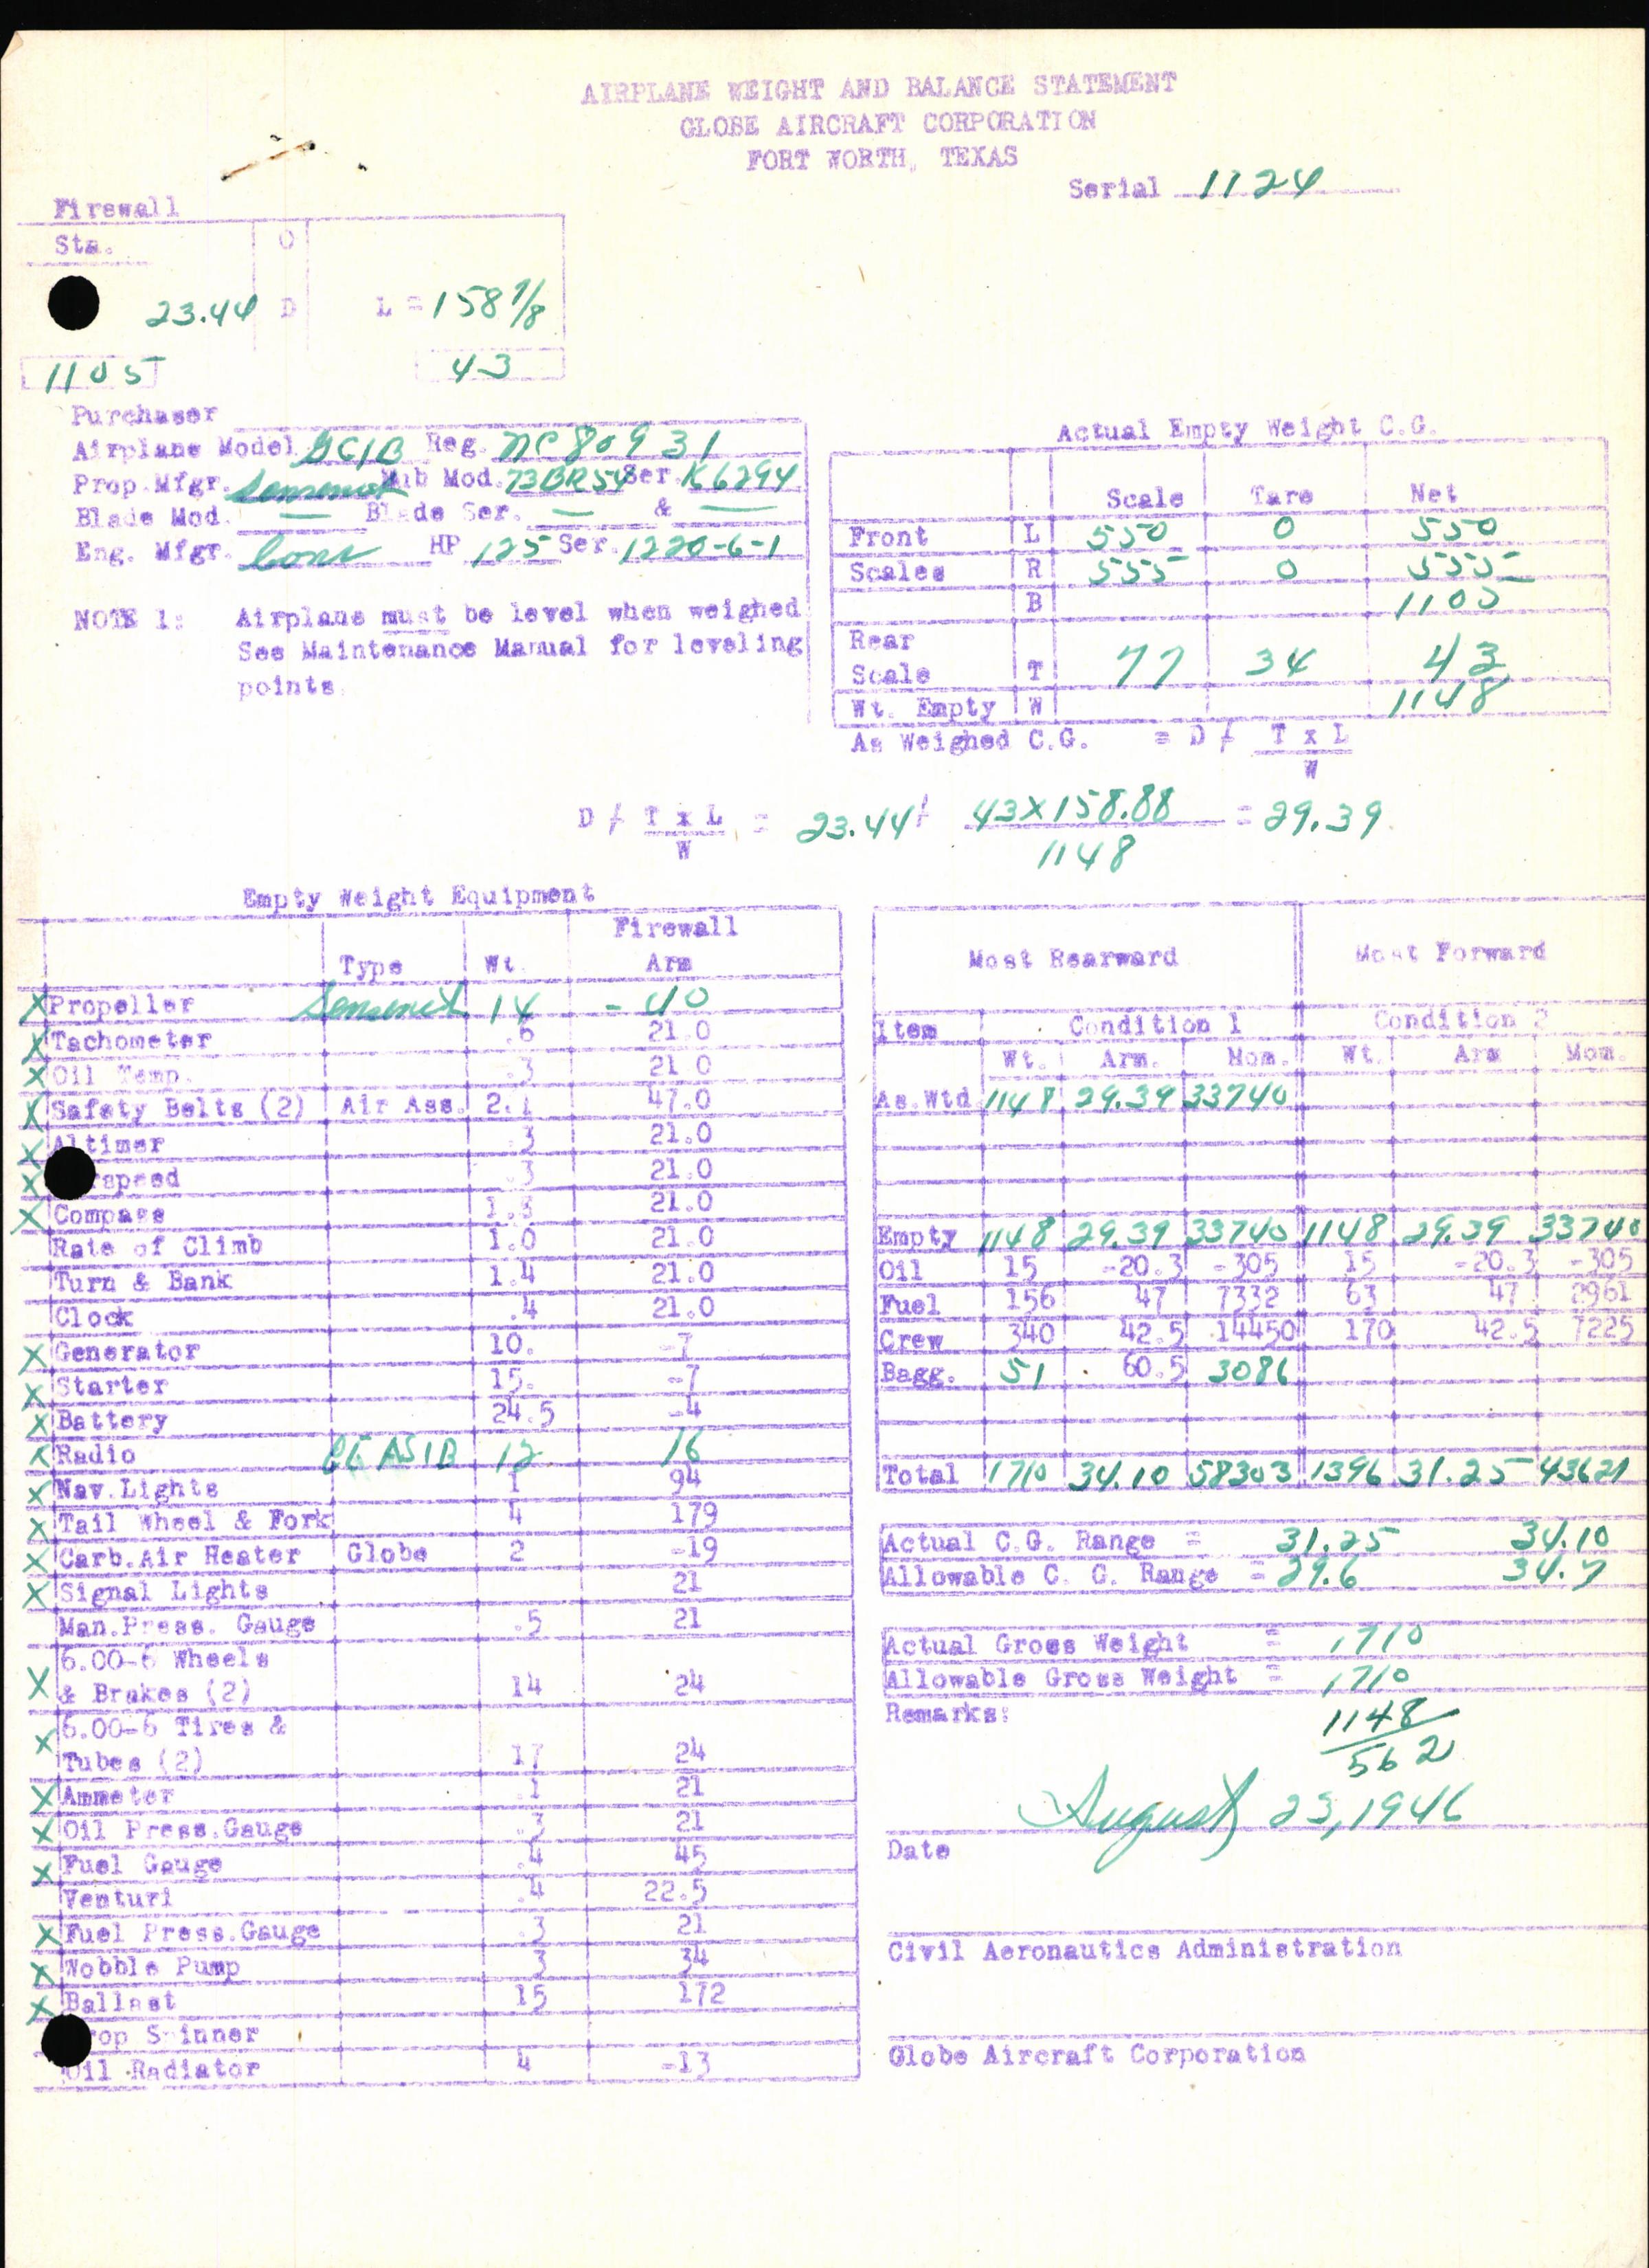 AIRPLANE WEIGHT AND BALANCE STATEMENT
GLOBE AIRCRAFT CORPORATION
FORT WORTH, TEXAS
Serial 1124
Firewall
Sta. O
23.44 D L = 158 7/8
1105 43
Purchaser
Airplane Model GC1B Reg. NC80931
Prop.Mfgr. Hub Mod. 73BR54 Ser. K6294
Blade Mod. — Blade Ser. — & —
Eng. Mfgr. Cont HP 125 Ser. 1220-6-1
NOTE 1: Airplane must be level when weighed
See Maintenance Manual for leveling
points.
Actual Empty Weight C.G.
Scale Tare Net
Front L 550 0 550
Scales R 555 0 555
B 1105
Rear
Scale T 77 34 43
Wt. Empty W 1148
As Weighed C.G. = D / T x L
W
D / T x L = 23.44 + 43x158.88 = 29.39
W 1148
Empty Weight Equipment
Firewall
Type Wt. Arm
X Propeller Sensenich 14 -40
X Tachometer .6 21.0
X Oil Temp. .3 21 0
X Safety Belts (2) Air Ass. 2.1 47.0
X Altimer .3 21.0
X rspeed .3 21.0
X Compass 21.0
Rate of Climb 1.0 21.0
Turn & Bank 1.4 21.0
Clock .4 21.0
X Generator 10. -7
X Starter 15. -7
X Battery 24.5 -4
X Radio GE AS1B 12 16
X Nav.Lights 1 94
X Tail Wheel & Fork 4 179
X Carb.Air Heater Globe 2 -19
X Signal Lights 21
Man.Press. Gauge .5 21
6.00-6 Wheels
X & Brakes (2) 14 24
X 6.00-6 Tires &
Tubes (2) 17 24
X Ammeter .1 21
X Oil Press.Gauge .3 21
X Fuel Gauge .4 45
Venturi .4 22.5
X Fuel Press.Gauge .3 21
X Wobble Pump 3 34
X Ballast 15 172
rop S inner
Oil Radiator 4 -13
Most Rearward Most Forward
Item Condition 1 Condition 2
Wt. Arm. Mom. Wt. Arm Mom.
As.Wtd 1148 29.39 33740
Empty 1148 29.39 33740 1148 29.39 33740
Oil 15 -20.3 -305 15 -20.3 -305
Fuel 156 47 7332 63 47 2961
Crew 340 42.5 14450 170 42.5 7225
Bagg. 51 60.5 3086
Total 1710 34.10 58303 1396 31.25 43621
Actual C.G. Range = 31.25 34.10
Allowable C. G. Range = 29.6 34.7
Actual Gross Weight = 1710
Allowable Gross Weight = 1710
Remarks: 1148
562
August 23, 1946
Date
Civil Aeronautics Administration
Globe Aircraft Corporation